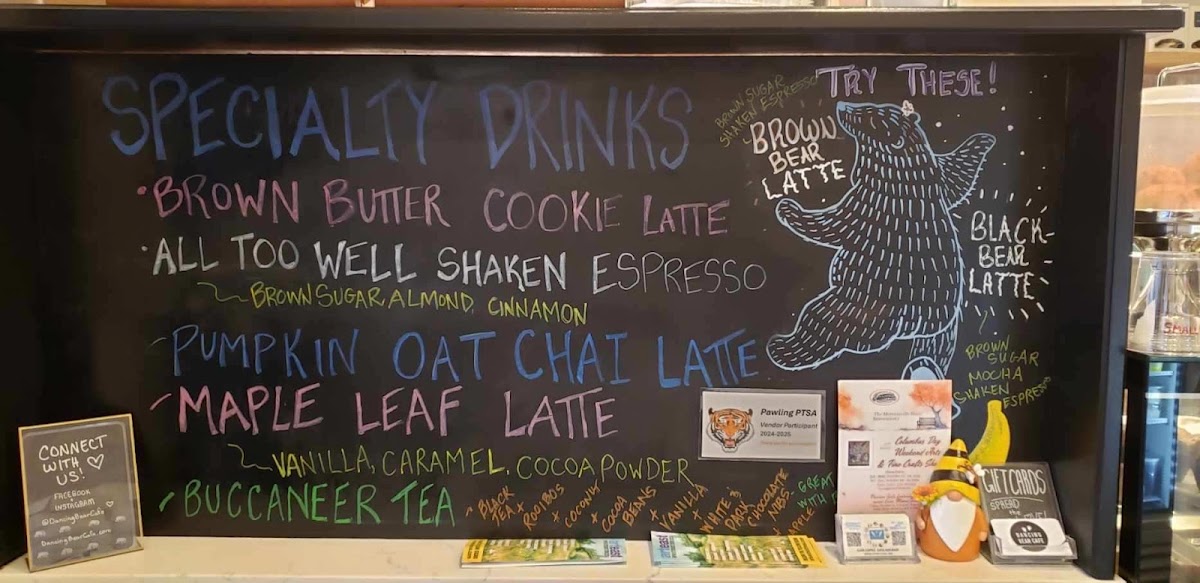 SPECIALTY DRINKS
• BROWN BUTTER COOKIE LATTE
• ALL TOO WELL SHAKEN ESPRESSO
BROWN SUGAR, ALMOND, CINNAMON
PUMPKIN OAT CHAI LATTE
MAPLE LEAF LATTE
VANILLA, CARAMEL, COCOA POWDER
BUCCANEER TEA
BLACK TEA +
ROOIBOS +
COCONUT +
COCOA BEANS +
VANILLA +
WHITE & DARK CHOCOLATE NIBS.
GREAT WITH
TRY THESE!
BROWN SUGAR
SHAKEN ESPRESSO
BROWN
BEAR
LATTE
BLACK
BEAR
LATTE
BROWN
SUGAR
MOCHA
SHAKEN
ESPRESSO
CONNECT
WITH
US!
FACEBOOK
INSTAGRAM
@DancingBearCafe
DancingBearCafe.com
Pawling PTSA
Vendor Participant
2024-2025
Columbus Day
Weekend Arts
& Fine Crafts
GIFTCARDS
SPREAD
the
DANCING
BEAR CAFE
SMALL